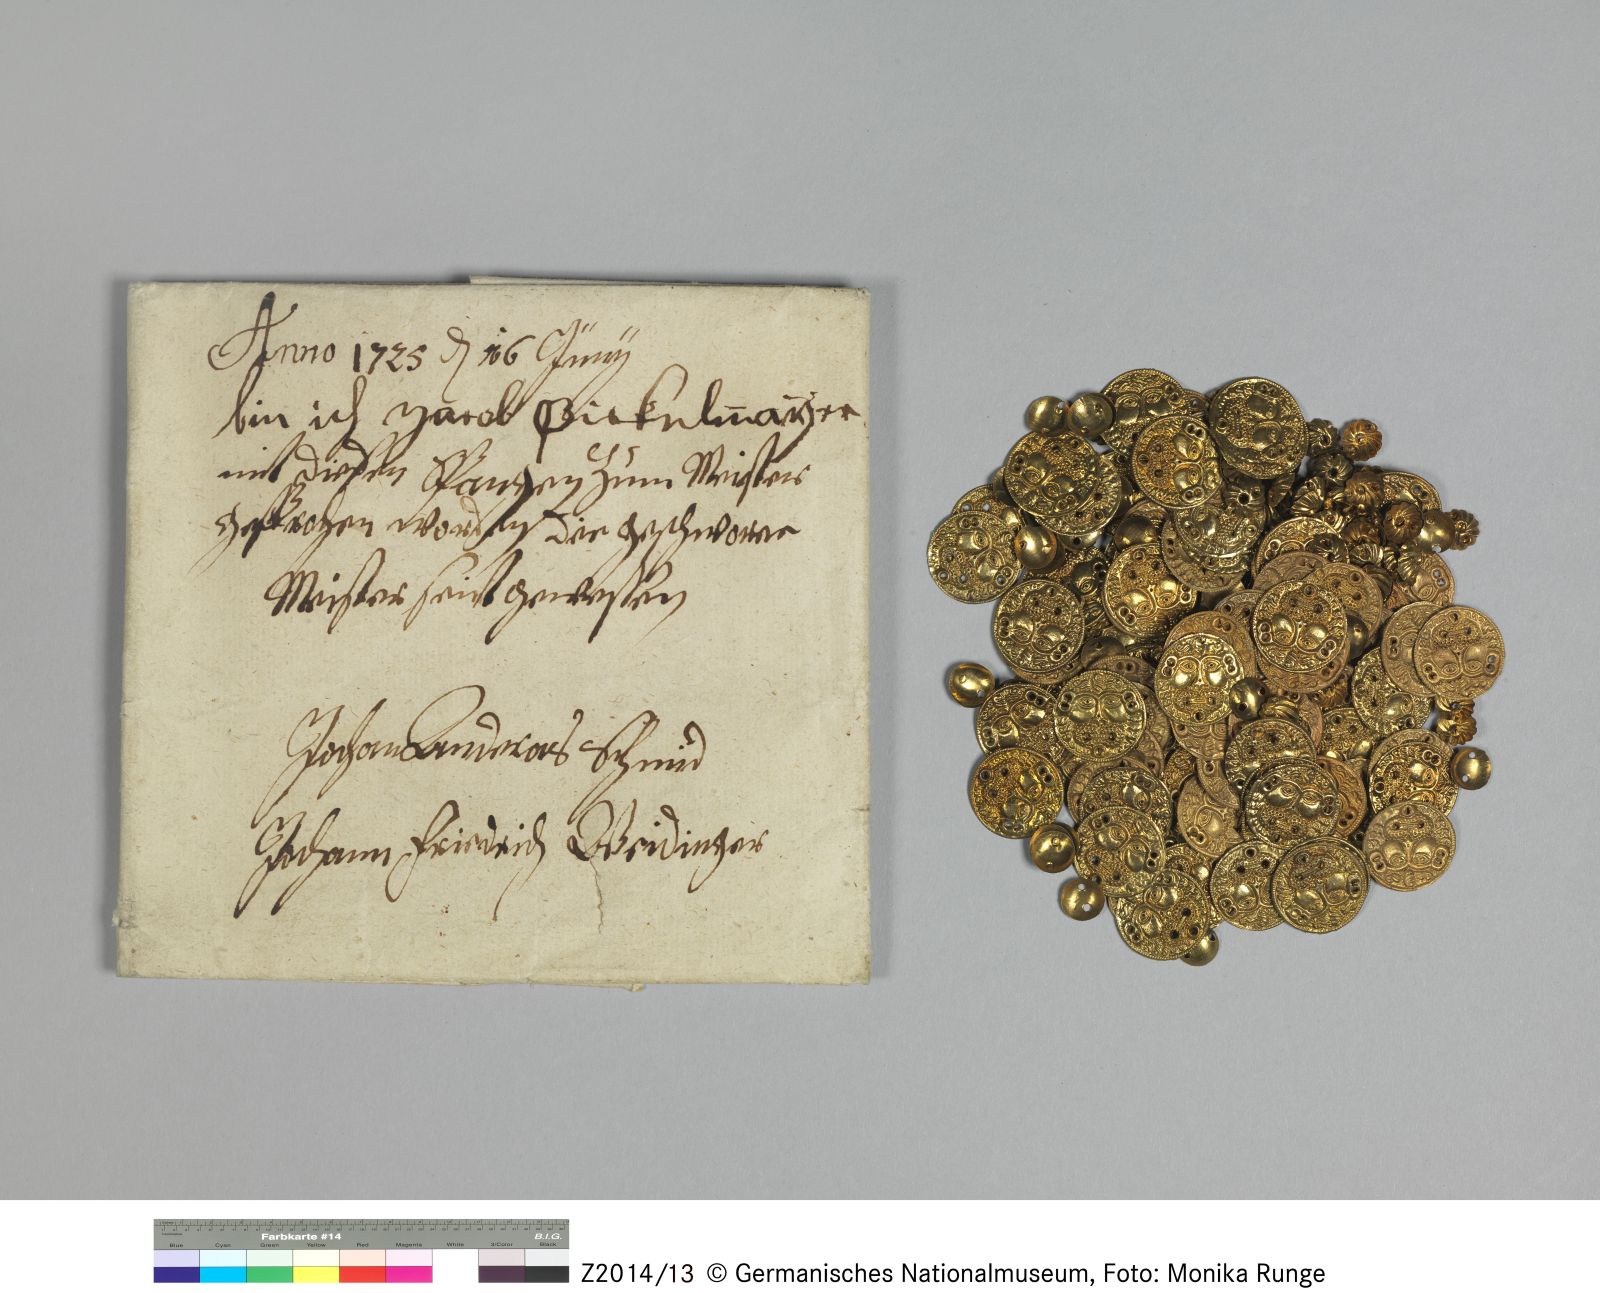 Anno 1725 d 16 Juny
bin ich Jacob Bickelmayer
mit diesen Spangen zum Meister
gesprochen worden die geschworne
Meister seint gewessen
Johan Anderas Schmid
Johann Friedrich Weidinger
Farbkarte #14
B.I.G.
Blue Cyan Green Yellow Red Magenta White 3/Color Black
Z2014/13 © Germanisches Nationalmuseum, Foto: Monika Runge